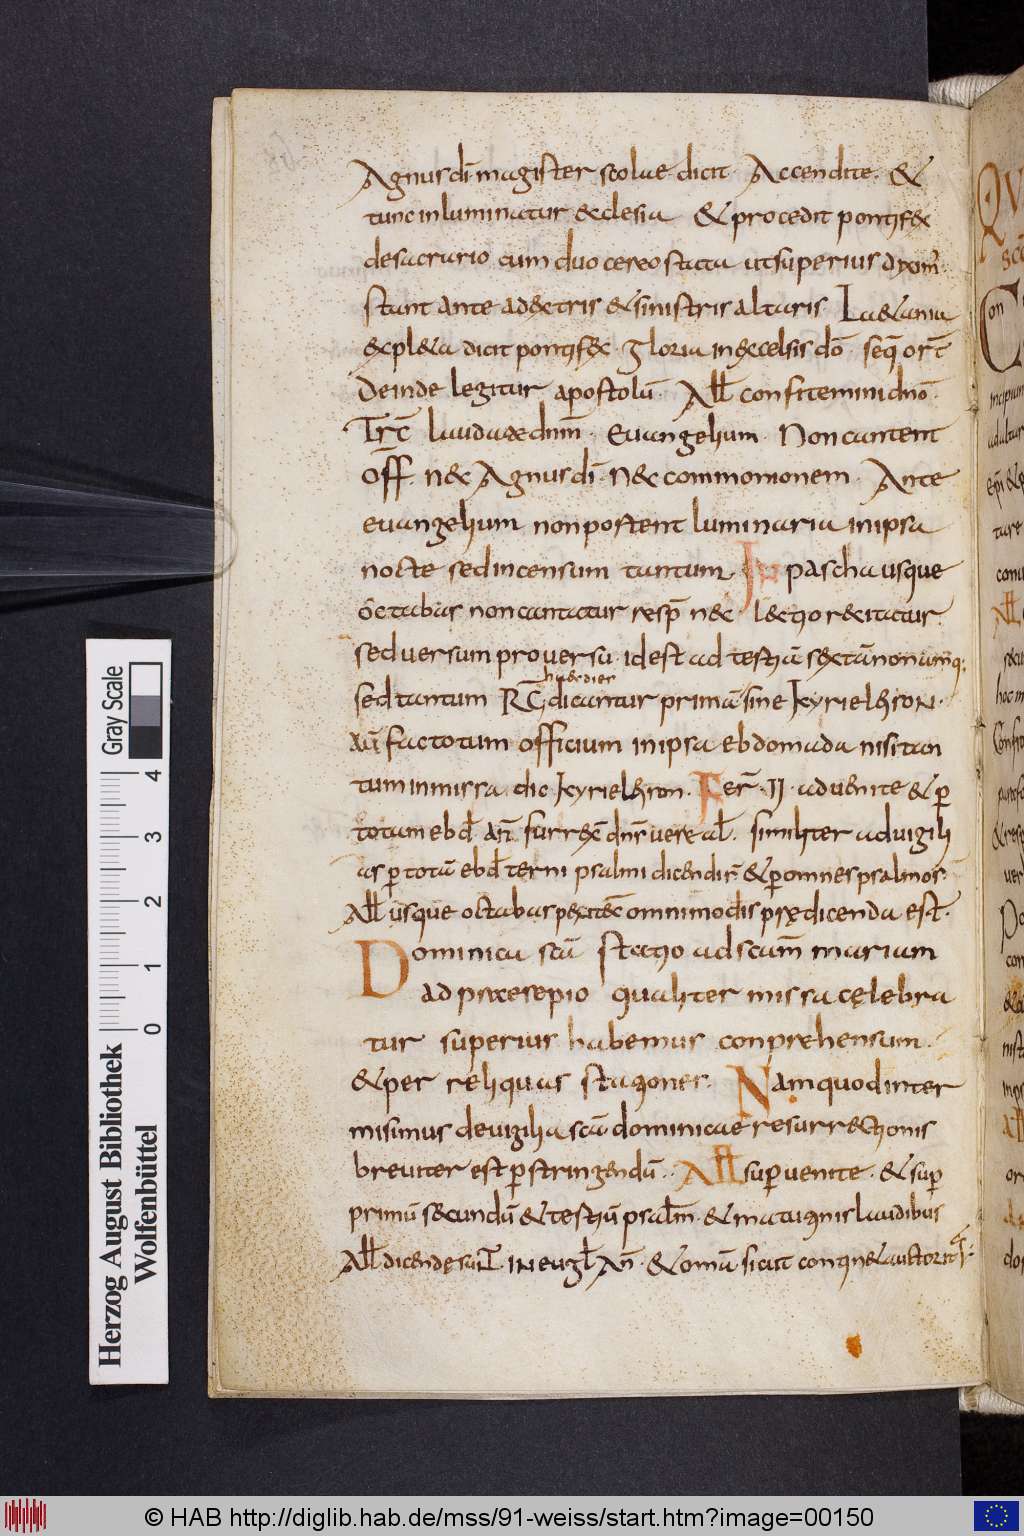 Agnus dī magister scolae dicit. Accendite. &
tunc inluminatur ecclesia & procedit pontifex
de sacrario cum duo cereostata ut superius
stant ante a dextris & sinistris altaris. Laetania
expleta dicit pontifex. Gloria in excelsis dō. seq̄ or̄t
Deinde legitur apostolū. All confitemini dnō.
Tr̄c laudate dnm̄. Evangelium. Non cantent
off̄. nec Agnus dī. nec commonionem. Ante
evangelium non portent luminaria in ipsa
nocte sed incensum tantum. In pascha usque
octabas non cantatur resp̄ nec lectio recitatur.
sed versum pro versu. id est ad tertiā sextā nonamq;
habe dies
sed tantum R̄G dicantur primā sine kyrieleison.
an̄ factotum officium in ipsa ebdomada nisi tan
tum in missa dic kyrieleison. Fer̄. II. advenite & p̄
totam ebd̄. an̄ surrex̄ dn̄s vere al̄. similiter ad vigili
as p̄ totā ebd̄ terni psalmi dicendi & p̄ omnes psalmos.
All usque octabas pentec̄ omnimodis predicenda est.
Dominica scā statio ad scam̄ mariam
ad praesepio qualiter missa celebra
tur superius habemus conprehensum.
& per reliquas stationes. Nam quod inter
misimus de vigilia scā dominicae resurrectionis
breviter est p̄stringendū. All sup̄ venite. & sup̄
primū secundū & tertiū psalm̄. & matutinis laudibus
All dicendę sunt in eugl̄ An̄. & omā sicut continet auctorit
Con
Herzog August Bibliothek
Wolfenbüttel
Gray Scale
0 1 2 3 4
© HAB http://diglib.hab.de/mss/91-weiss/start.htm?image=00150